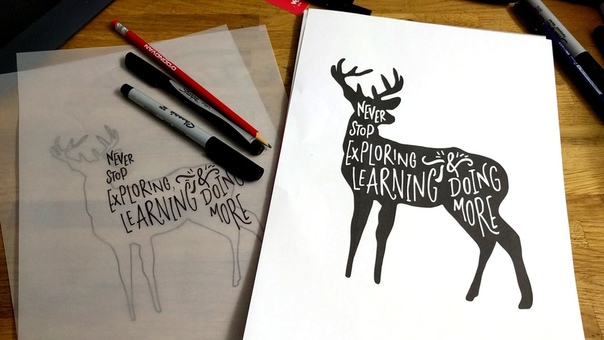 NEVER
STOP
EXPLORING,
LEARNING & DOING
MORE
NEVER
STOP
EXPLORING
LEARNING & DOING
MORE
Sharpie